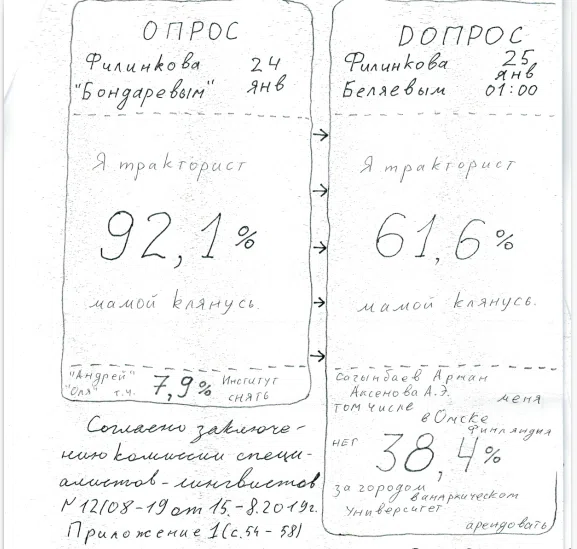 ОПРОС
Филинкова 24
"Бондаревым" янв
Я тракторист
92,1%
мамой клянусь.
"Андрей" 7,9% Институт
"Оля" т.ч. снять
Согласно заключе-
нию комиссии специ-
алистов-лингвистов
№12/08-19 от 15.-8.2019г.
Приложение 1 (с.54-58)
ДОПРОС
Филинкова 25
янв
Беляевым 01:00
Я тракторист
61,6%
мамой клянусь.
Согынбаев Арман
Аксенова А.Э. меня
том числе
в Омске
Финляндия
нет 38,4%
за городом
в анархическом
Университет
арендовать